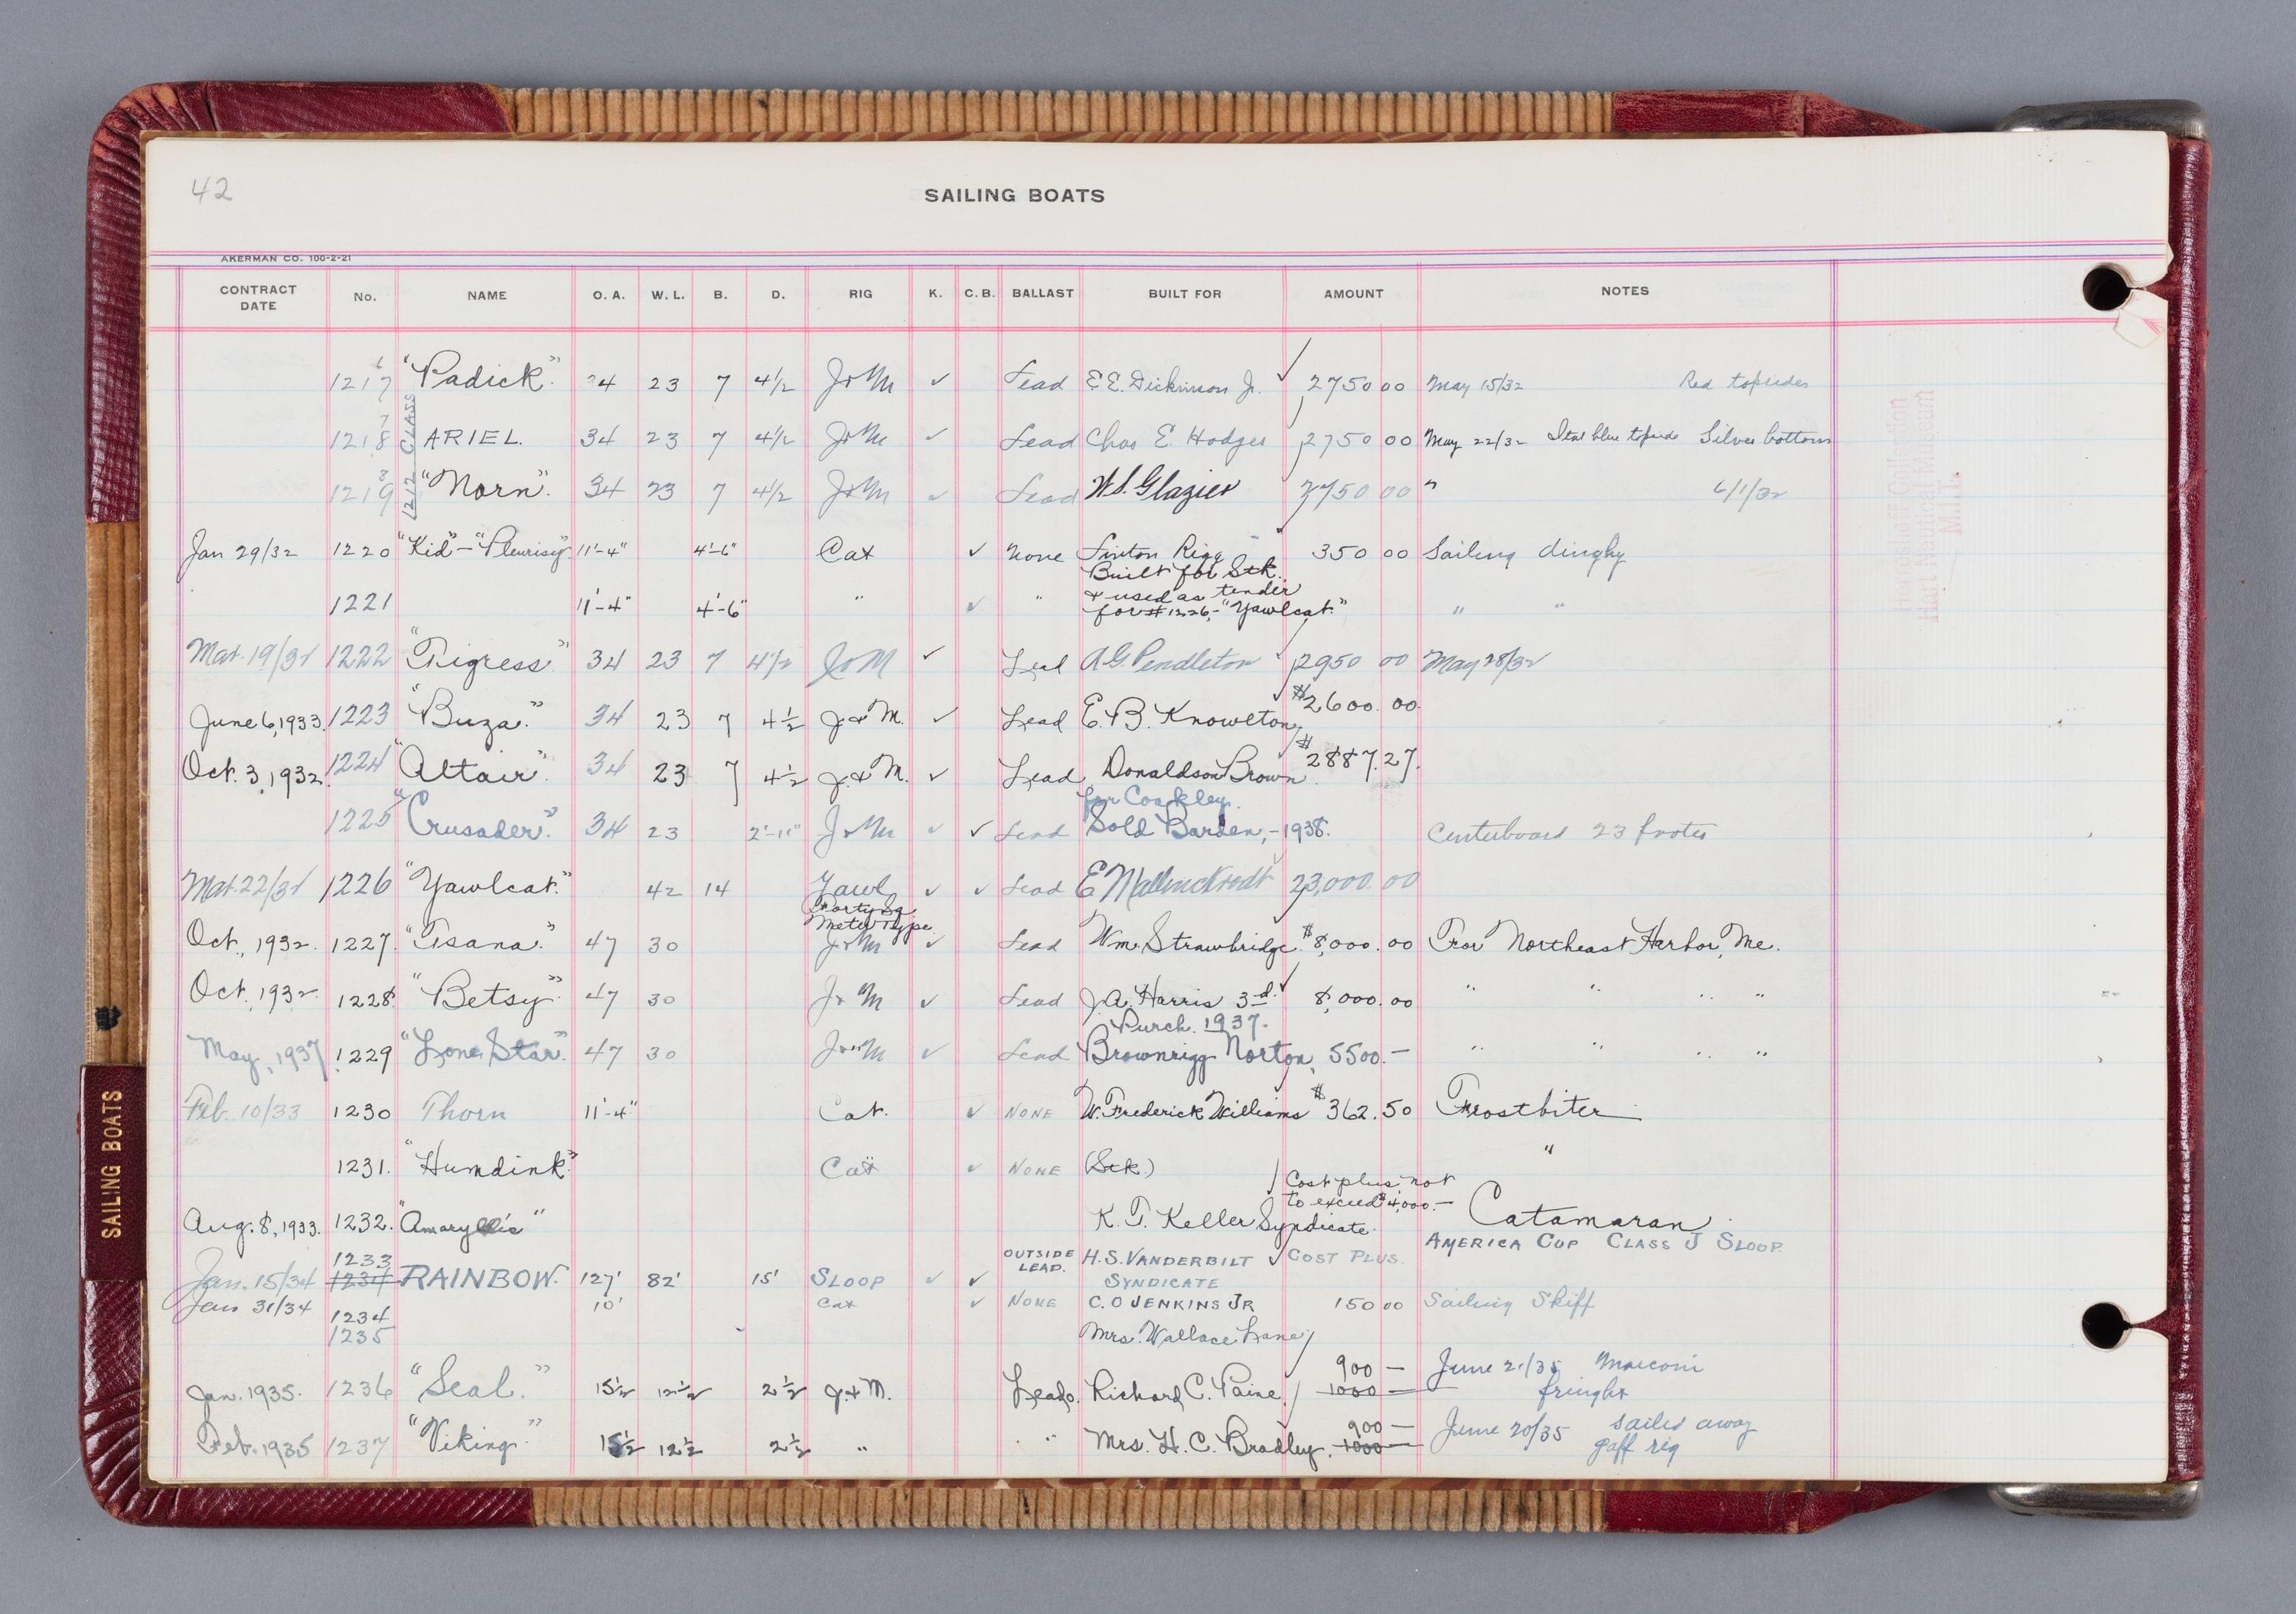 42
SAILING BOATS
AKERMAN CO. 100-2-21
CONTRACT DATE No. NAME O. A. W. L. B. D. RIG K. C. B. BALLAST BUILT FOR AMOUNT NOTES
1212 CLASS
6
1217 "Padick" 34 23 7 4½ J & M ✓ Lead E. E. Dickinson Jr. ✓ 2750 00 May 15/32 Red topsides
7
1218 ARIEL. 34 23 7 4½ J & M ✓ Lead Chas E. Hodges 2750 00 May 22/32 blue topside Silver bottom
8
1219 "Norn". 34 23 7 4½ J & M ✓ Lead W. S. Glazier 2750 00 " 6/1/32
Jan 29/32 1220 "Kid" - "Pleurisy" 11'-4" 4'-6" Cat ✓ None Linton Rigg 350 00 Sailing dinghy
Built for Stk.
1221 11'-4" 4'-6" " ✓ " & used as tender " "
for #1226,- "Yawlcat."
Mar. 19/32 1222 "Tigress" 34 23 7 4½ J & M ✓ Lead A. G. Pendleton ✓ 2950 00 May 28/32
June 6, 1933. 1223 "Buza." 34 23 7 4½ J & M. ✓ Lead E. B. Knowlton, $2600.00.
Oct. 3, 1932. 1224 "Altair". 34 23 7 4½ J. & M. ✓ Lead Donaldson Brown. $2887.27.
for Coakley.
1225 "Crusader". 34 23 2'-11" J & M ✓ ✓ Lead Sold Barden,-1938. Centerboard 23 footer
Mar. 22/32 1226 "Yawlcat." 42 14 Yawl ✓ ✓ Lead E Mallinckrodt 23,000.00
Forty Sq.
Meter Type
Oct., 1932. 1227. "Tsana." 47 30 J & M ✓ Lead Wm. Strawbridge $8,000.00 For Northeast Harbor, Me.
Oct., 1932. 1228. "Betsy" 47 30 J & M ✓ Lead J. A. Harris 3d. ✓ 8,000.00 " " " "
Purch. 1937.
May, 1937 1229 "Lone Star". 47 30 J & M ✓ Lead Brownrigg Norton, 5500.— " " " "
Feb. 10/33 1230 Thorn 11'-4" Cat. ✓ NONE W. Frederick Williams $362.50 Frostbiter
1231. "Humdink" Cat ✓ NONE (Stk.) "
Cost plus not
to exceed $4,000.—
Aug. 8, 1933. 1232. "Amaryllis" K. T. Keller Syndicate. Catamaran.
1233 OUTSIDE LEAD. H. S. VANDERBILT ✓ COST PLUS. AMERICA CUP CLASS J SLOOP.
Jan. 15/34 1234 RAINBOW. 127' 82' 15' SLOOP ✓ ✓ SYNDICATE
Jan 31/34 1234 10' Cat ✓ NONE C. O JENKINS JR 150 00 Sailing Skiff
1235 Mrs. Wallace Lane
900 — June 21/35 Marconi
Jan. 1935. 1236 "Seal." 15½ 12½ 2½ J. & M. Lead. Richard C. Paine. 1000 —
900 — June 20/35 sailed away
Feb. 1935 1237 "Viking" 15½ 12½ 2½ " " Mrs. H. C. Bradley. 1000 — gaff rig
SAILING BOATS
Hart Nautical Museum
M.I.T.